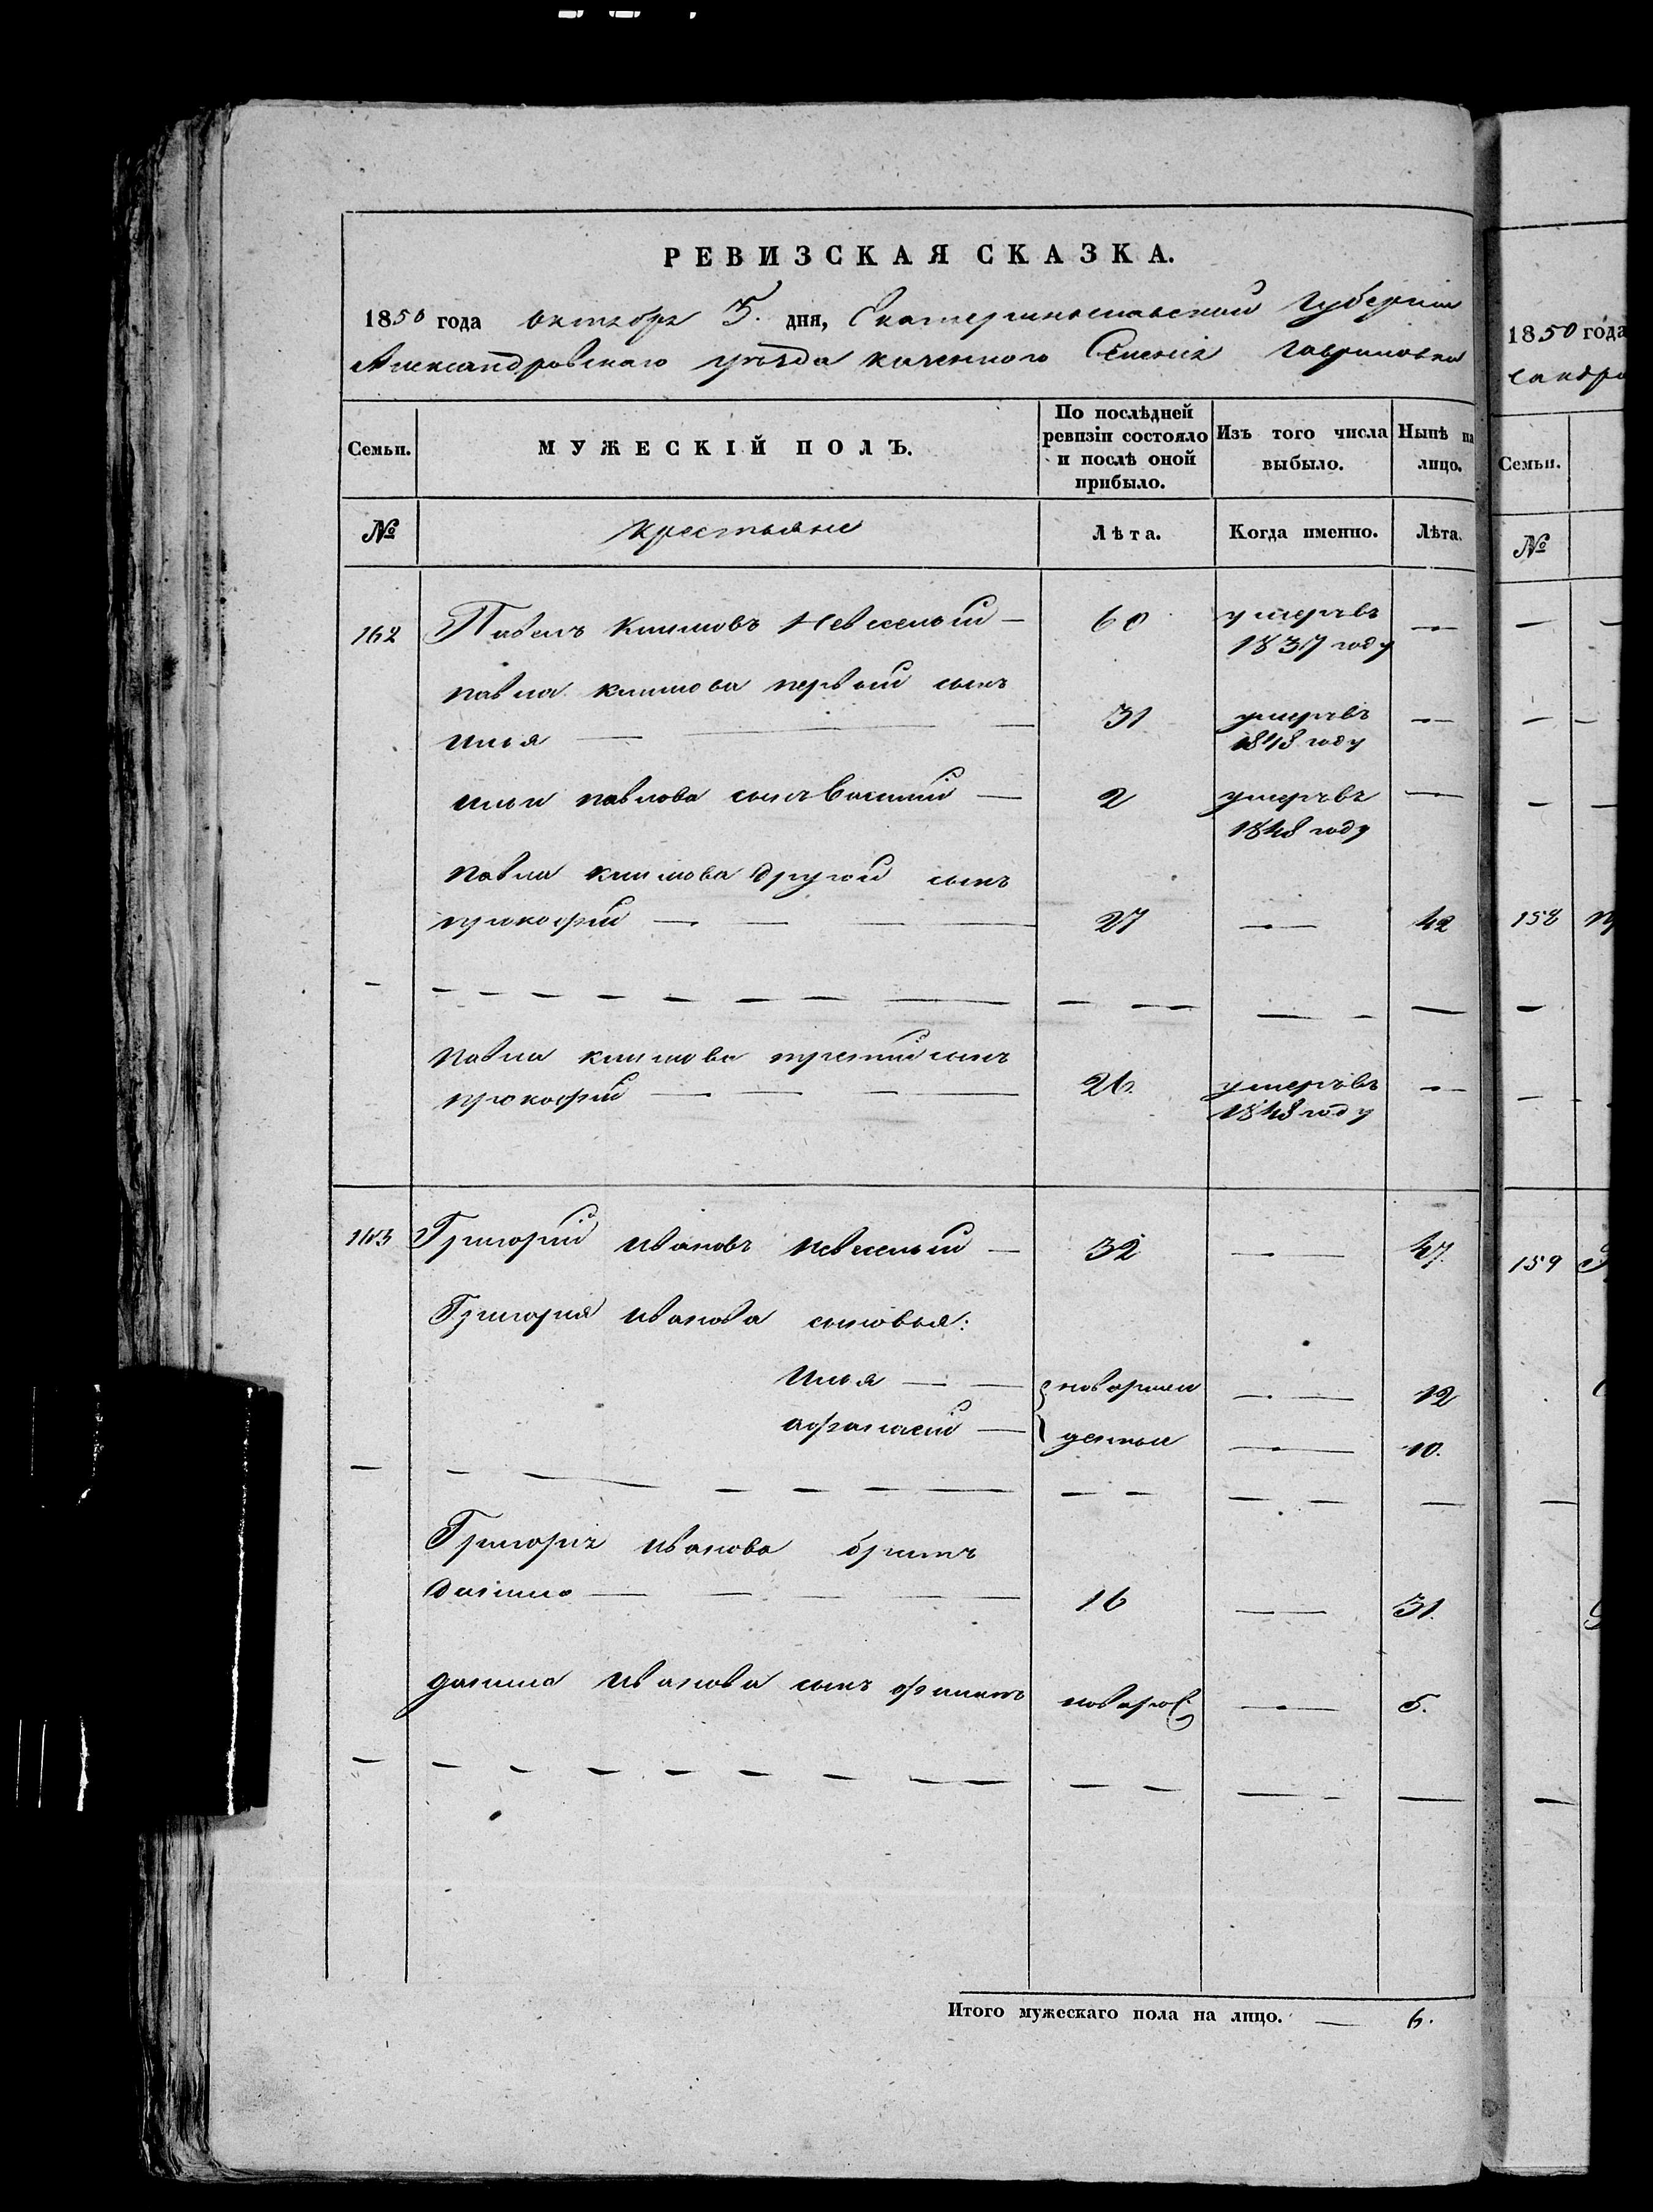 РЕВИЗСКАЯ СКАЗКА.
1850 года октября 3. дня, Екатеринославской Губернии
Александровскаго уѣзда казенного Селенія Гавриловки
Семьи. МУЖЕСКІЙ ПОЛЪ. По послѣдней ревизіи состояло и послѣ оной прибыло. Изъ того числа выбыло. Нынѣ на лицо.
№ Крестьяне Лѣта. Когда именно. Лѣта.
162 Павелъ Климовъ Невеселый — 60 умеръ въ 1837 году —
Павла Климова первый сынъ
Илья — 31 умеръ въ 1848 году —
Ильи Павлова сынъ Василий — 2 умеръ въ 1848 году —
Павла Климова другой сынъ
Прокофий — 27 — 42
Павла Климова третий сынъ
Прокофий — 26. умеръ въ 1848 году —
163 Григорий Ивановъ Невеселый — 32 — 47.
Григория Иванова сыновья:
Илья — новорож — 12
Афанасей — денные — 10.
Григорія Иванова братъ
Данило — 16 — 31.
Данила Иванова сынъ Филипъ новорож — 5.
Итого мужескаго пола на лицо. — 6.
1850 года
Семьи.
№
158
159